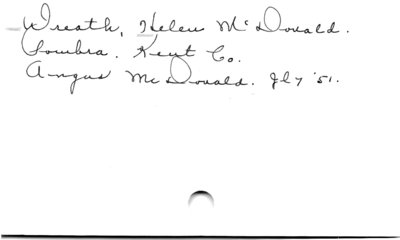 Wreath, Helen McDonald.
Sombra. Kent Co.
Angus McDonald. Jly '51.